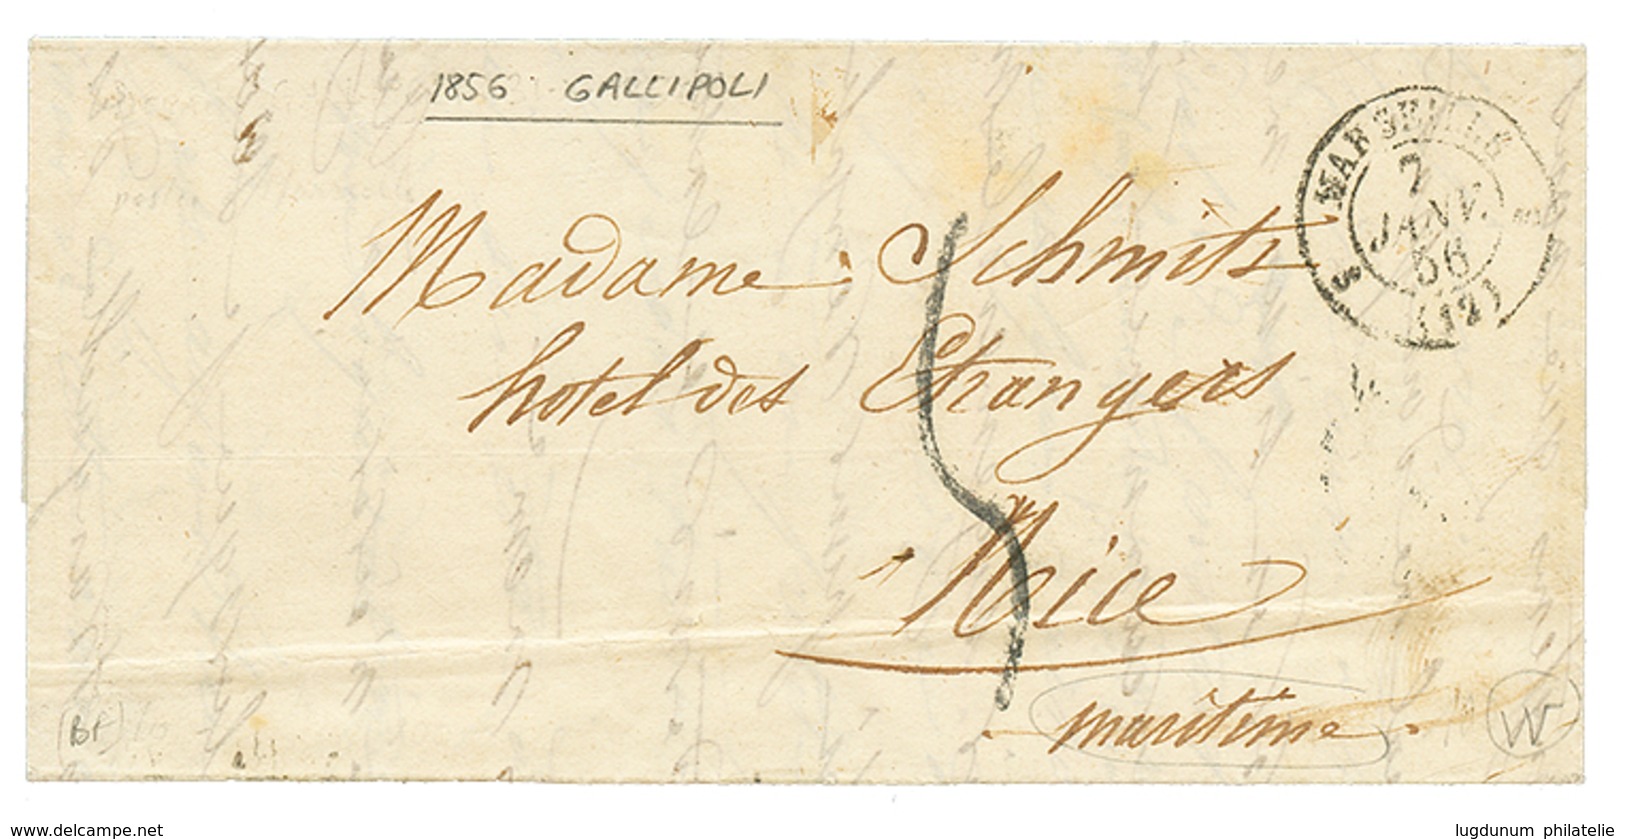 1856 GALLIPOLI
MARSEILLE
7
JANV.
56
(12)
Madame Schmitz
hotel des Etrangers
Nice
maritime
(Bf)
W
www.delcampe.net
lugdunum philatelie